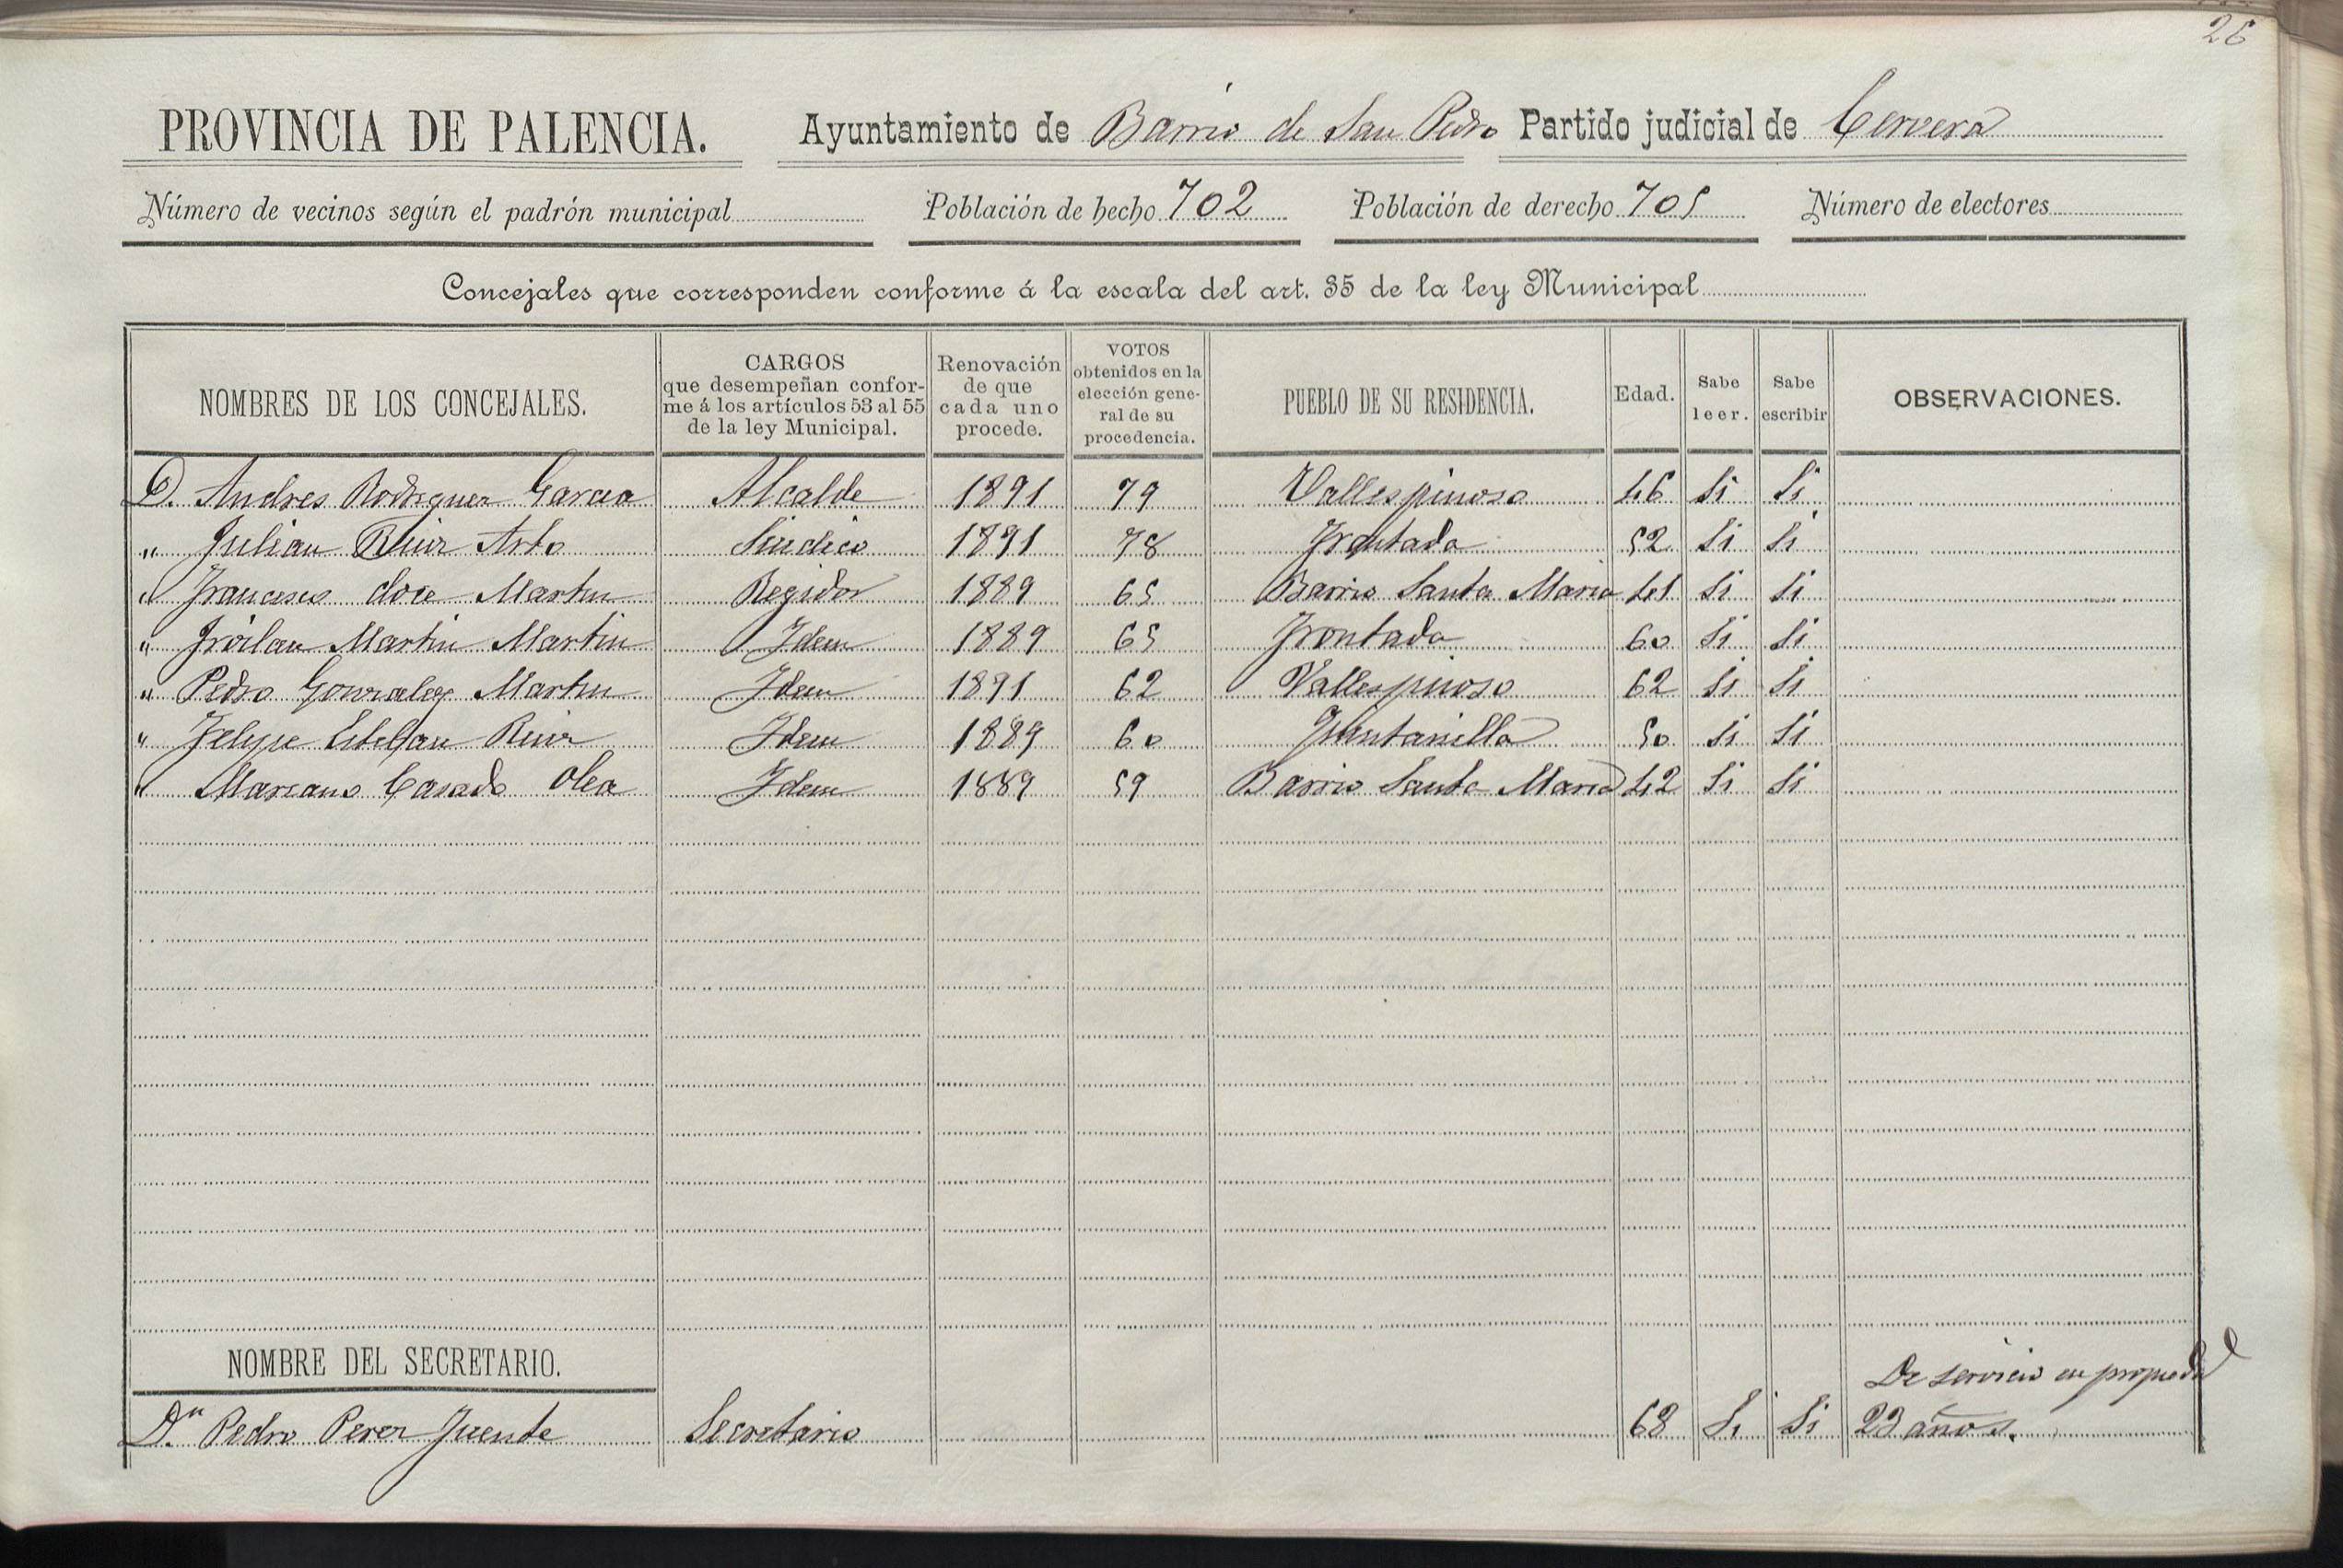 26
PROVINCIA DE PALENCIA. Ayuntamiento de Barrio de San Pedro Partido judicial de Cervera
Número de vecinos según el padrón municipal Población de hecho 702 Población de derecho 705 Número de electores
Concejales que corresponden conforme á la escala del art. 35 de la ley Municipal
NOMBRES DE LOS CONCEJALES. CARGOS que desempeñan conforme á los artículos 53 al 55 de la ley Municipal. Renovación de que cada uno procede. VOTOS obtenidos en la elección general de su procedencia. PUEBLO DE SU RESIDENCIA. Edad. Sabe leer. Sabe escribir OBSERVACIONES.
D. Andres Rodriguez Garcia Alcalde 1891 79 Vallespinoso 46 Si Si
" Julian Ruiz Arto Sindico 1891 78 Frontada 52 Si Si
" Francisco doce Martin Regidor 1889 65 Barrio Santa Maria 41 Si Si
" Froilan Martin Martin Idem 1889 65 Frontada 60 Si Si
" Pedro Gonzalez Martin Idem 1891 62 Vallespinoso 62 Si Si
" Felipe Esteban Ruiz Idem 1889 60 Quintanilla 50 Si Si
" Marzano Casado Olea Idem 1889 59 Barrio Santa Maria 42 Si Si
NOMBRE DEL SECRETARIO.
Dn. Pedro Perez Fuente Secretario 68 Si Si De servicio en propiedad
23 años.